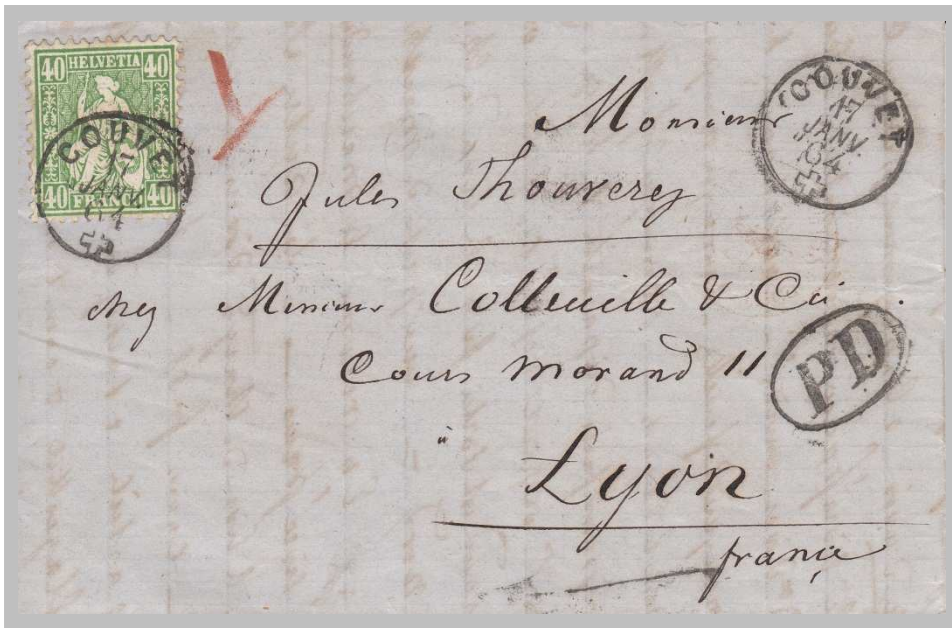 40 HELVETIA 40
40 FRANCO 40
COUVET
17
JANV
64
COUVET
17
JANV
64
Monsieur
Jules Thouverey
chez Messieurs Colleuille & Cie
Cours Morand 11
PD
à
Lyon
france